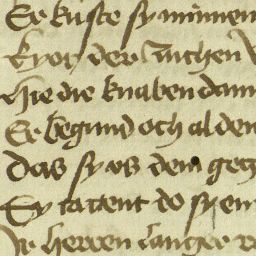 Er kuste sy minnen
tyor der
hie die knaben dann
Er begund och al den
das sy vs dem gez
Sy tattent do sy en
Ir herren langer